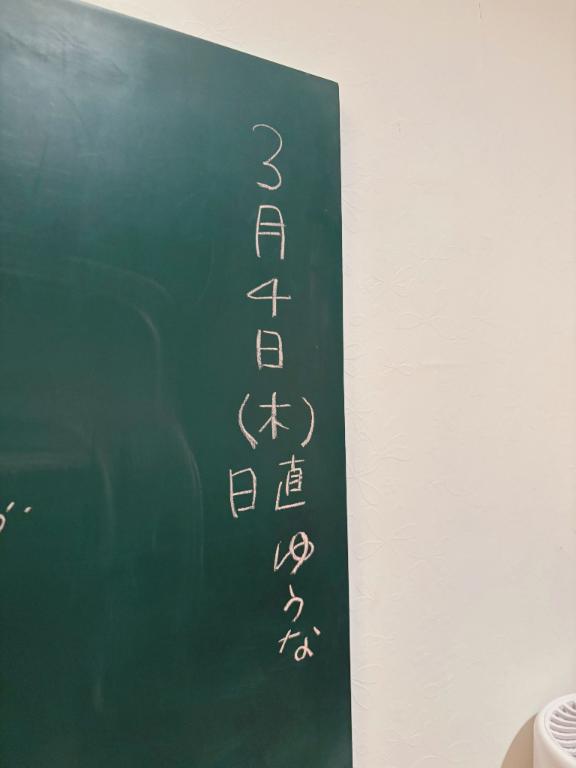 3月4日(木)
日直 ゆうな